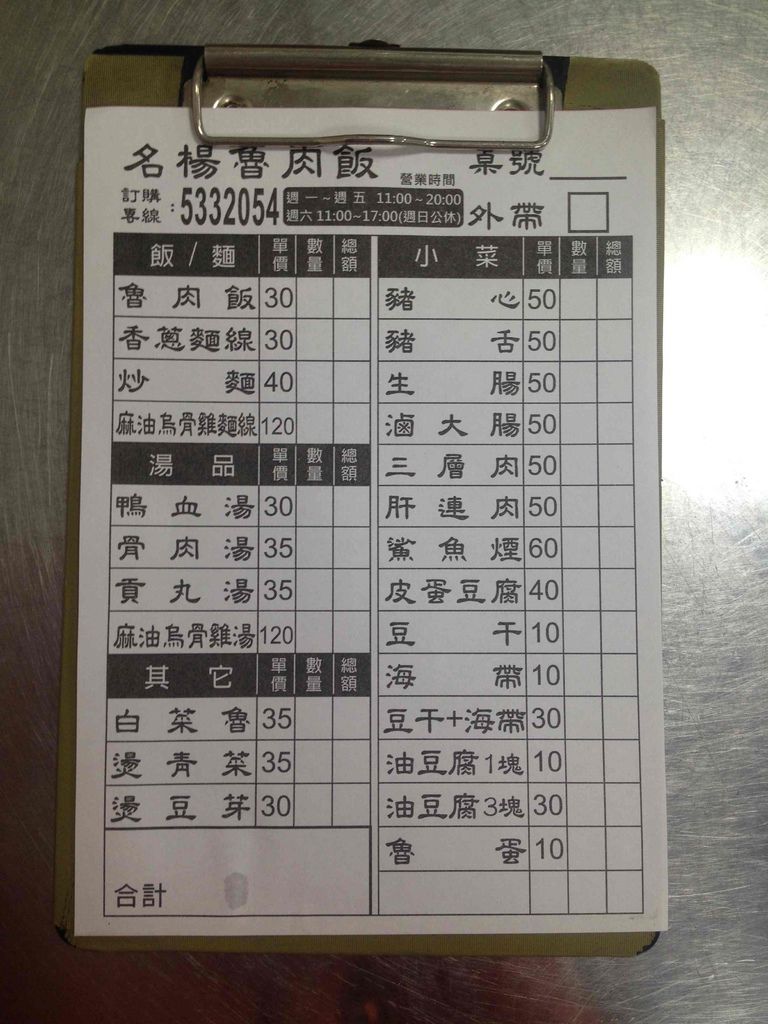 名楊魯肉飯 桌號
營業時間
訂購專線:5332054 週一~週五 11:00~20:00
週六 11:00~17:00(週日公休) 外帶
飯/麵 單價 數量 總額
魯肉飯 30
香蔥麵線 30
炒麵 40
麻油烏骨雞麵線 120
湯品 單價 數量 總額
鴨血湯 30
骨肉湯 35
貢丸湯 35
麻油烏骨雞湯 120
其它 單價 數量 總額
白菜魯 35
燙青菜 35
燙豆芽 30
合計
小菜 單價 數量 總額
豬心 50
豬舌 50
生腸 50
滷大腸 50
三層肉 50
肝連肉 50
鯊魚煙 60
皮蛋豆腐 40
豆干 10
海帶 10
豆干+海帶 30
油豆腐1塊 10
油豆腐3塊 30
魯蛋 10